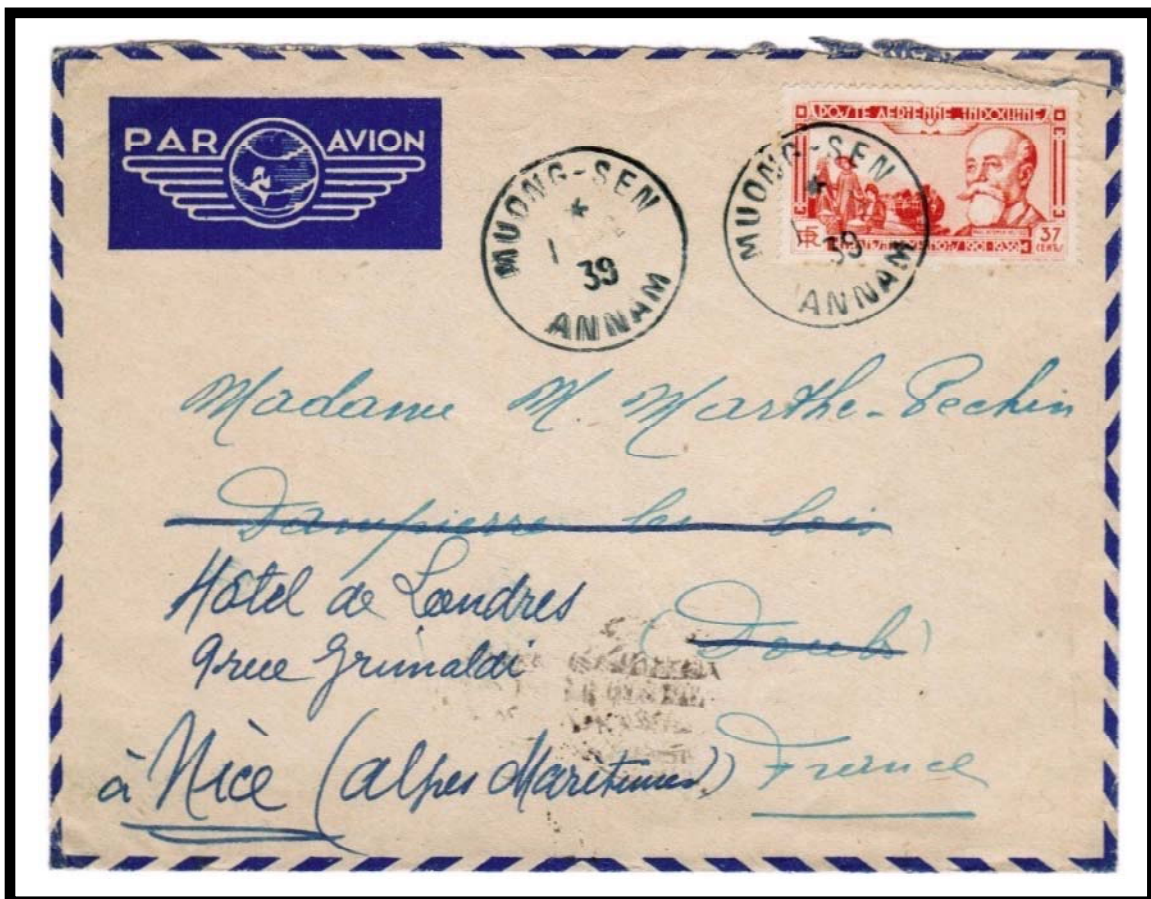 PAR AVION
MUONG-SEN
*
1
39
ANNAM
MUONG-SEN
*
39
ANNAM
POSTE AERIENNE INDOCHINE
RF
1901 1939
37
CENTS
Madame M. Marthe-Pechin
Dampierre les bois
Hôtel de Londres
(Doubs)
9 rue Grimaldi
à Nice (alpes Maritimes) France